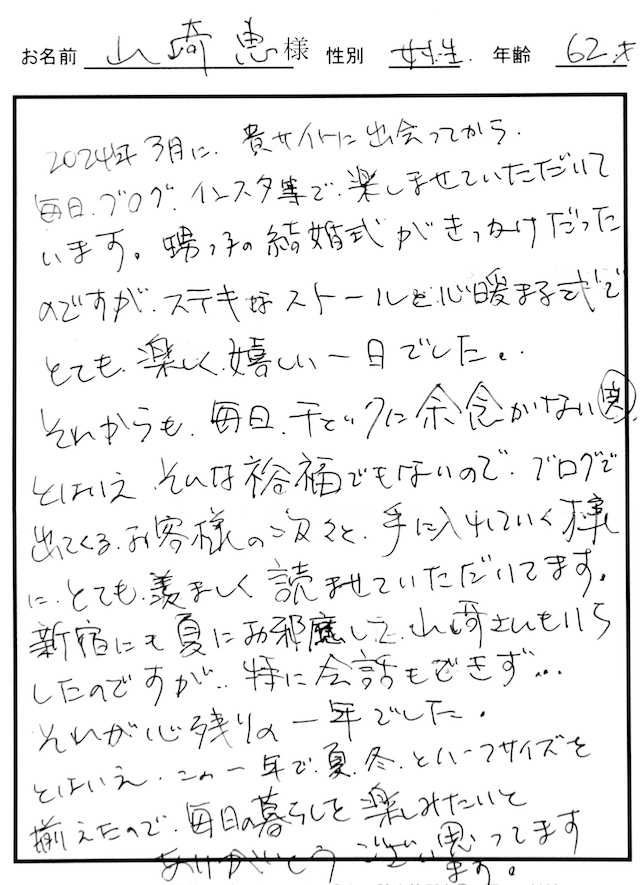 お名前 山崎 恵 様 性別 女性. 年齢 62才
2024年3月に、貴サイトに出会ってから、
毎日、ブログ、インスタ等で、楽しませていただいて
います。甥っ子の結婚式がきっかけだった
のですが、ステキなストールと、心暖まる式で
とても、楽しく、嬉しい一日でした。
それからも、毎日、チェックに余念がない笑、
とはいえ、そんな裕福でもないので、ブログで
出てくる、お客様の次々と、手に入れていく様
に、とても、羨ましく読ませていただいてます。
新宿にも夏にお邪魔して、山崎さんもいら
したのですが、特に会話もできず…
それが心残りの一年でした。
とはいえ、この一年で、夏、冬、とハーフサイズを
揃えたので、毎日の暮らしを楽しみたいと
思ってます
ありがとうございます。